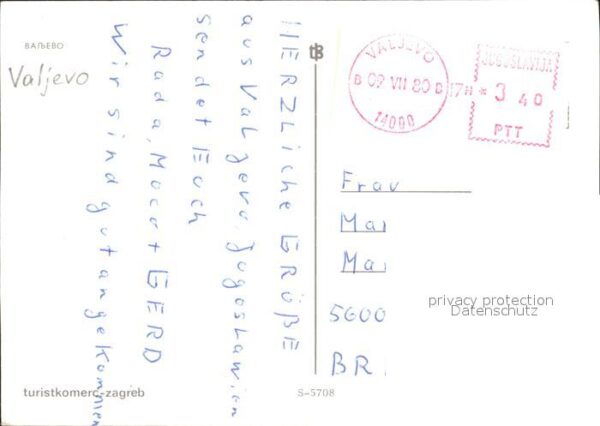 ВАЉЕВО
Valjevo
HERZLICHE GRÜßE
aus Valjevo, Jugoslawien
sendet Euch
Rada, Moca + GERD
Wir sind gut angekommen
VALJEVO
B 09 VII 80 D 17H *
14000
JUGOSLAVIJA
3 40
PTT
Frau
Ma
Ma
5600
BR.
privacy protection
Datenschutz
turistkomerc-zagreb
S-5708